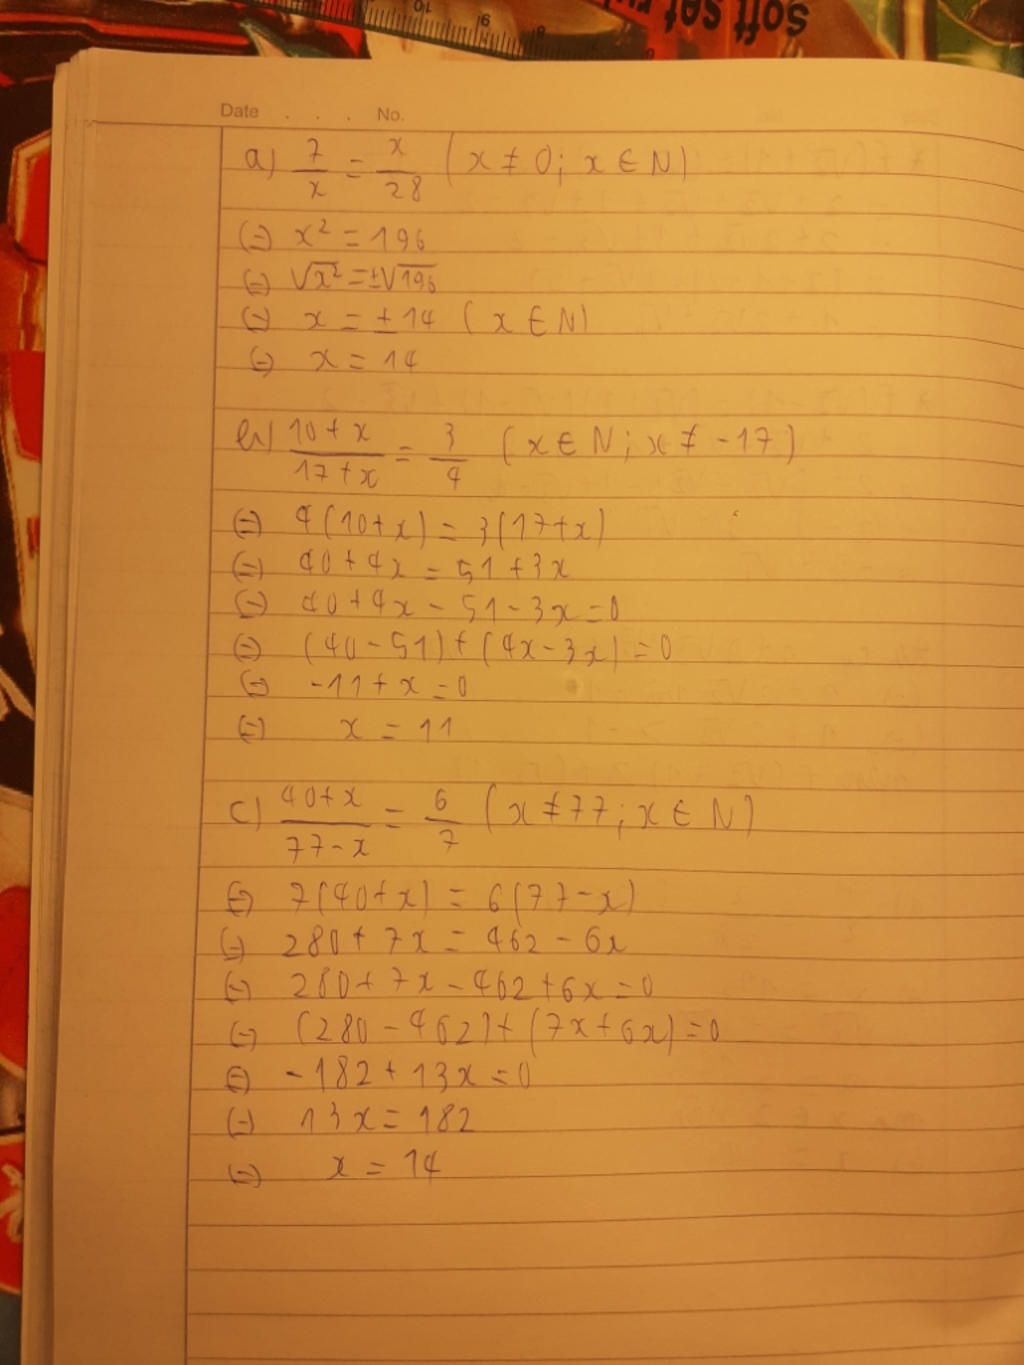 soft set ru
10 9 8
Date . . . . No.
a) 7/x = x/28 (x ≠ 0; x ∈ N)
(=) x² = 196
(=) √x² = ±√196
(=) x = ±14 (x ∈ N)
(=) x = 14
b) 10+x/17+x = 3/4 (x ∈ N; x ≠ -17)
(=) 4(10+x) = 3(17+x)
(=) 40+4x = 51+3x
(=) 40+4x-51-3x=0
(=) (40-51)+(4x-3x)=0
(=) -11+x=0
(=) x = 11
c) 40+x/77-x = 6/7 (x ≠ 77; x ∈ N)
(=) 7(40+x) = 6(77-x)
(=) 280+7x = 462-6x
(=) 280+7x-462+6x=0
(=) (280-462)+(7x+6x)=0
(=) -182+13x=0
(=) 13x=182
(=) x = 14